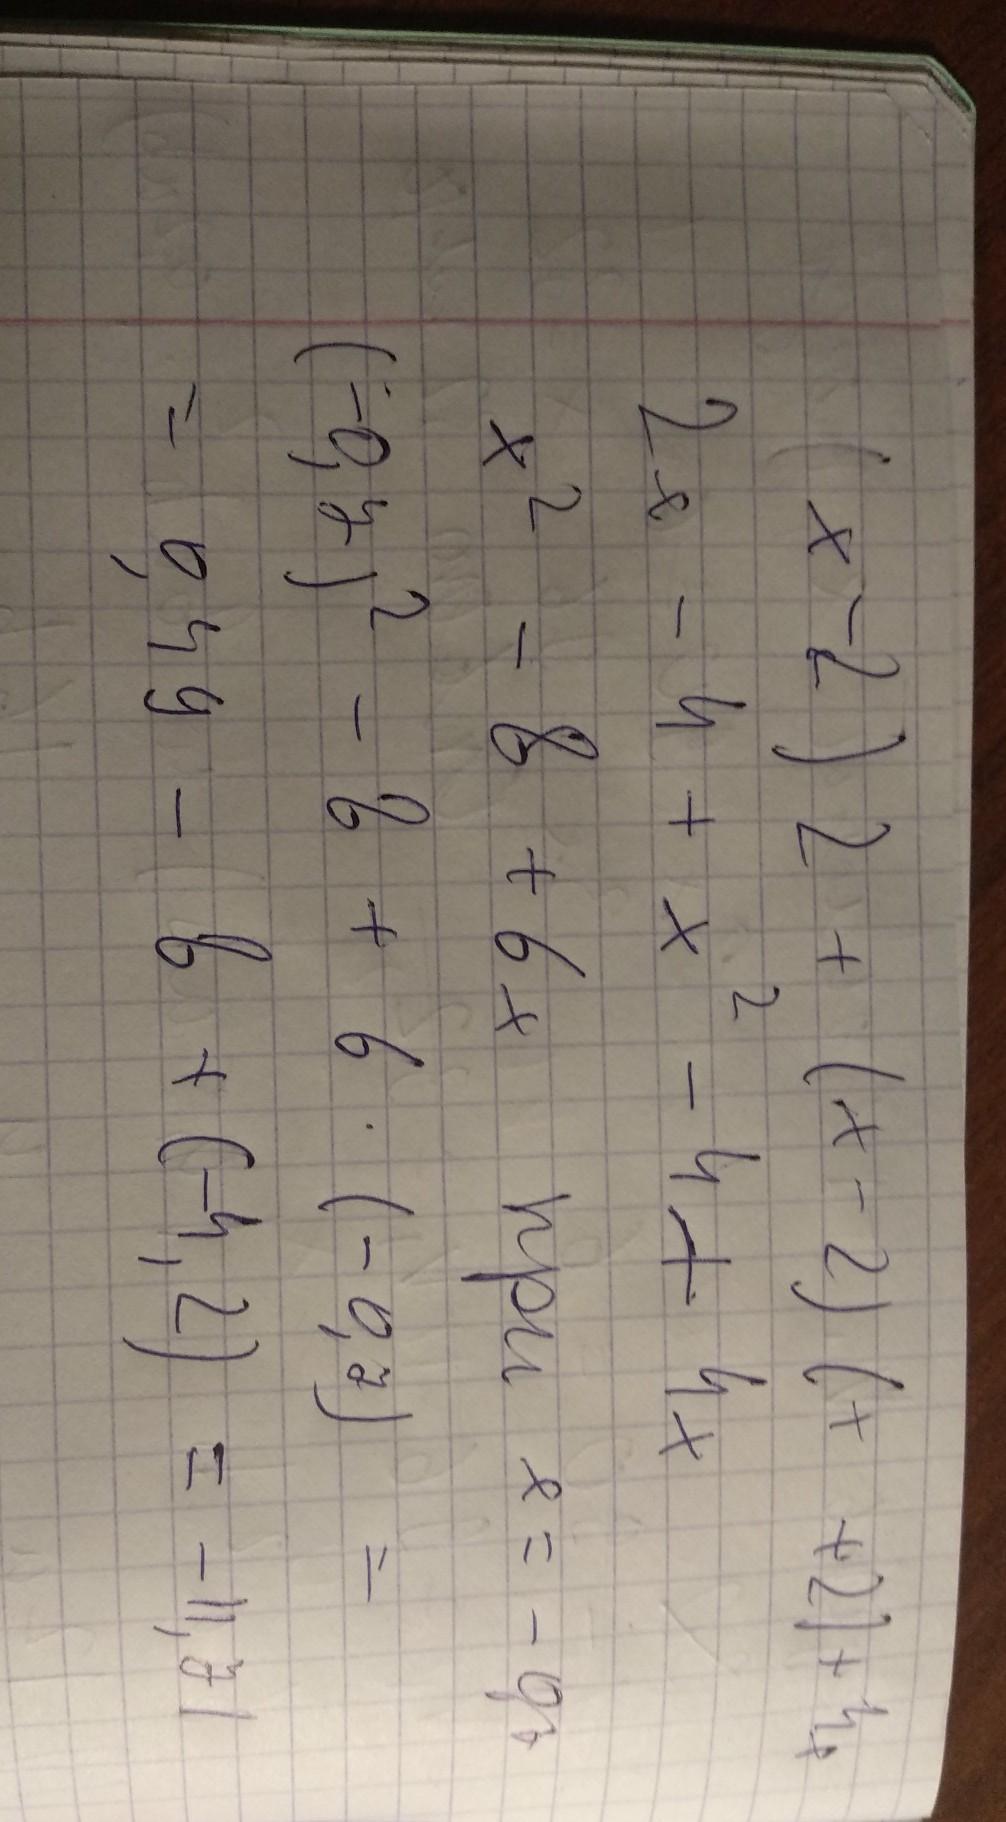 (x-2)2 + (x-2)(x+2)+4x
2x - 4 + x² - 4 + 4x
x² - 8 + 6x при x = -0,7
(-0,7)² - 8 + 6 · (-0,7) =
= 0,49 - 8 + (-4,2) = -11,71